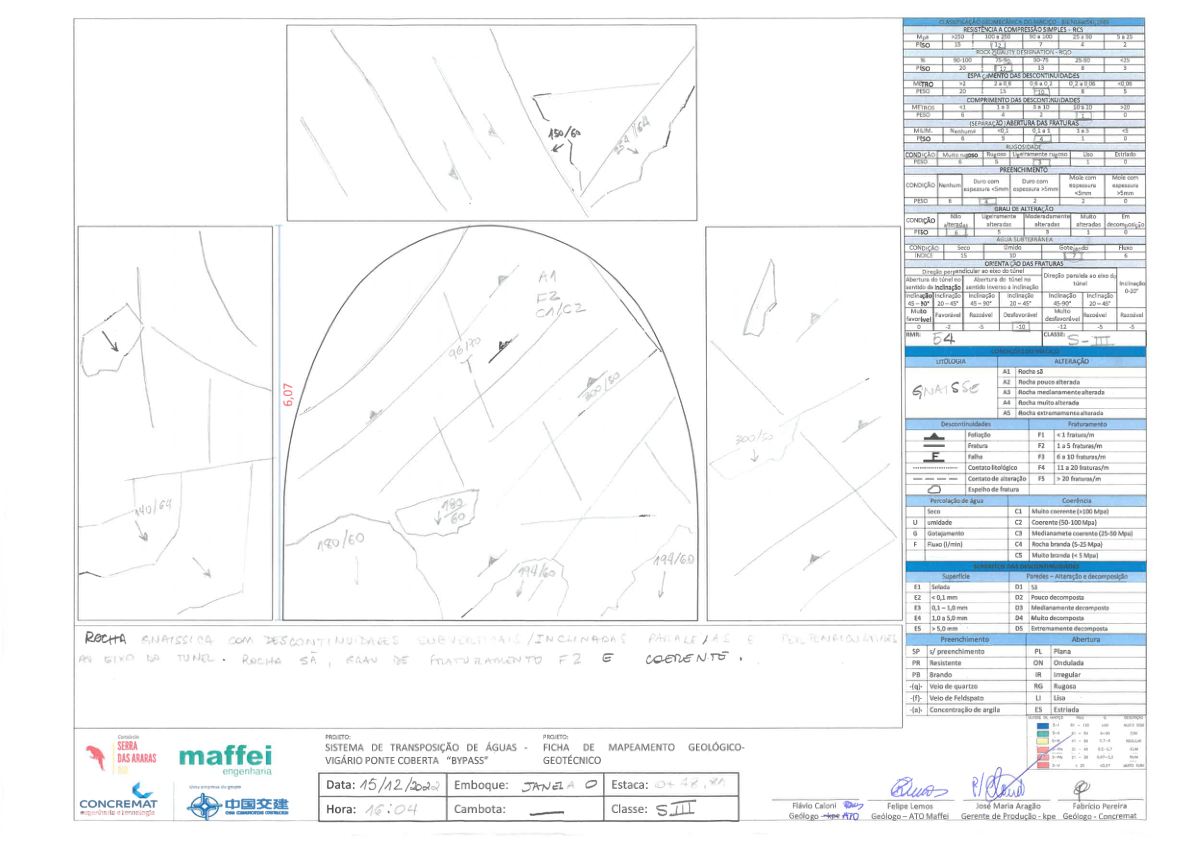 CLASSIFICAÇÃO GEOMECÂNICA DO MACIÇO - BIENIAWSKI, 1989
RESISTÊNCIA A COMPRESSÃO SIMPLES - RCS
Mpa >250 100 a 250 50 a 100 25 a 50 5 a 25
PESO 15 12 7 4 2
ROCK QUALITY DESIGNATION - RQD
% 90-100 75-90 50-75 25-50 <25
PESO 20 17 13 8 3
ESPAÇAMENTO DAS DESCONTINUIDADES
METRO >2 2 a 0,6 0,6 a 0,2 0,2 a 0,06 <0,06
PESO 20 15 10 8 5
COMPRIMENTO DAS DESCONTINUIDADES
METROS <1 1 a 3 3 a 10 10 a 20 >20
PESO 6 4 2 1 0
(SEPARAÇÃO) ABERTURA DAS FRATURAS
MILIM. Nenhuma <0,1 0,1 a 1 1 a 5 <5
PESO 6 5 4 1 0
RUGOSIDADE
CONDIÇÃO Muito rugoso Rugoso Ligeiramente rugoso Liso Estriado
PESO 6 5 3 1 0
PREENCHIMENTO
CONDIÇÃO Nenhum Duro com espessura <5mm Duro com espessura >5mm Mole com espessura <5mm Mole com espessura >5mm
PESO 6 4 2 2 0
GRAU DE ALTERAÇÃO
CONDIÇÃO Não alteradas Ligeiramente alteradas Moderadamente alteradas Muito alteradas Em decomposição
PESO 6 5 3 1 0
ÁGUA SUBTERRÂNEA
CONDIÇÃO Seco Úmido Gotejando Fluxo
ÍNDICE 15 10 7 6
ORIENTAÇÃO DAS FRATURAS
Direção perpendicular ao eixo do túnel Direção paralela ao eixo do túnel Inclinação 0-20°
Abertura do túnel no sentido da inclinação Abertura do túnel no sentido inverso a inclinação
Inclinação 45 – 90° Inclinação 20 – 45° Inclinação 45 – 90° Inclinação 20 – 45° Inclinação 45-90° Inclinação 20 – 45°
Muito favorável Favorável Razoável Desfavorável Muito desfavorável Razoável Razoável
0 -2 -5 -10 -12 -5 -5
RMR: 54 CLASSE: S-III
LITOLOGIA ALTERAÇÃO
GNAISSE
A1 Rocha sã
A2 Rocha pouco alterada
A3 Rocha medianamente alterada
A4 Rocha muito alterada
A5 Rocha extremamente alterada
Descontinuidades Fraturamento
Foliação F1 < 1 fratura/m
Fratura F2 1 a 5 fraturas/m
F Falha F3 6 a 10 fraturas/m
Contato litológico F4 11 a 20 fraturas/m
Contato de alteração F5 > 20 fraturas/m
Espelho de fratura
Percolação de água Coerência
Seco C1 Muito coerente (>100 Mpa)
U umidade C2 Coerente (50-100 Mpa)
G Gotejamento C3 Medianamete coerente (25-50 Mpa)
F Fluxo (l/min) C4 Rocha branda (5-25 Mpa)
C5 Muito branda (< 5 Mpa)
SUPERFÍCIE DAS DESCONTINUIDADES
Superfície Paredes – Alteração e decomposição
E1 Selada D1 Sã
E2 < 0,1 mm D2 Pouco decomposta
E3 0,1 – 1,0 mm D3 Medianamente decomposta
E4 1,0 a 5,0 mm D4 Muito decomposta
E5 > 5,0 mm D5 Extremamente decomposta
Preenchimento Abertura
SP s/ preenchimento PL Plana
PR Resistente ON Ondulada
PB Brando IR Irregular
-(q)- Veio de quartzo RG Rugosa
-(f)- Veio de Feldspato LI Lisa
-(a)- Concentração de argila ES Estriada
150/60
A1
F2
C1/C2
6,07
300/50
180/60
180/60
194/60
194/60
ROCHA GNAISSICA COM DESCONTINUIDADES SUBVERTICAIS/INCLINADAS PARALELAS E PERPENDICULARES
AO EIXO DO TUNEL. ROCHA SÃ, GRAU DE FRATURAMENTO F2 E COERENTE.
Consórcio
SERRA
DAS ARARAS
maffei
engenharia
CONCREMAT
engenharia e tecnologia
Uma empresa do grupo
中国交建
PROJETO:
SISTEMA DE TRANSPOSIÇÃO DE ÁGUAS - VIGÁRIO PONTE COBERTA "BYPASS"
PROJETO:
FICHA DE MAPEAMENTO GEOLÓGICO-GEOTÉCNICO
Data: 15/12/2022 Emboque: JANELA O Estaca:
Hora: 16:04 Cambota: — Classe: SIII
Flávio Caloni Felipe Lemos José Maria Aragão Fabrício Pereira
Geólogo kpe ATO Geólogo – ATO Maffei Gerente de Produção - kpe Geólogo - Concremat